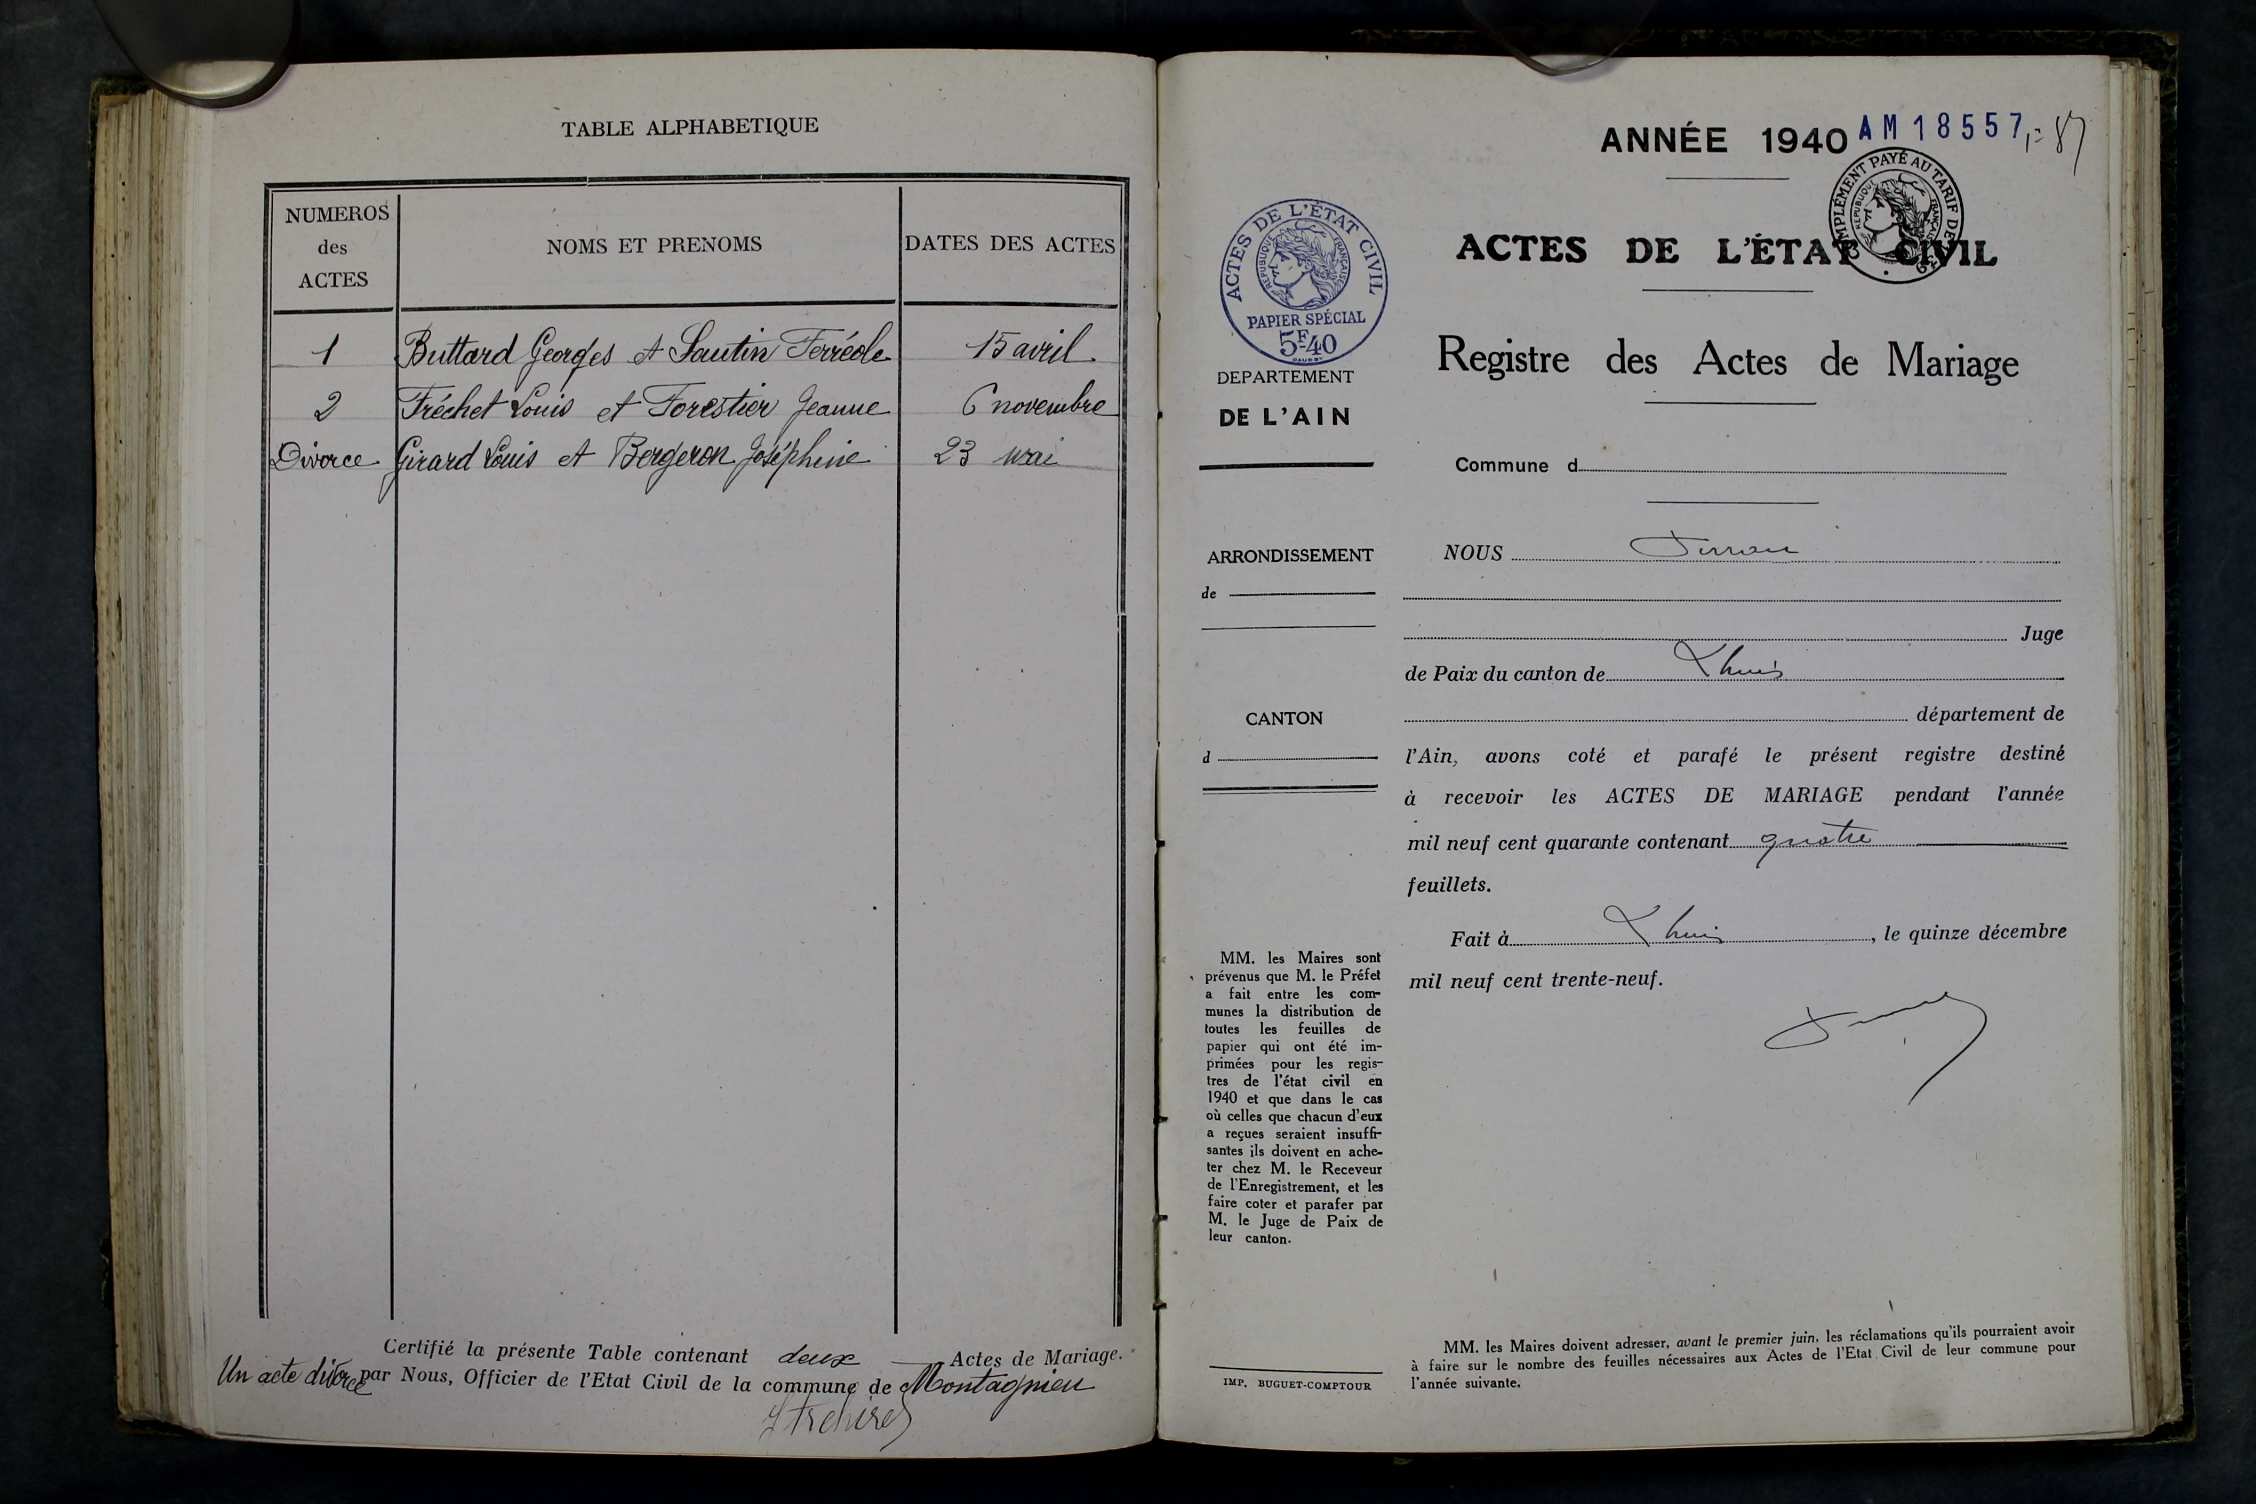 TABLE ALPHABETIQUE
NUMEROS
des
ACTES
NOMS ET PRENOMS
DATES DES ACTES
1 Buttard Georges et Sautin Ferréole 15 avril
2 Fréchet Louis et Forestier Jeanne 6 novembre
Divorce Girard Louis et Bergeron Joséphine 23 mai
Certifié la présente Table contenant deux Actes de Mariage.
Un acte divorce par Nous, Officier de l'Etat Civil de la commune de Montagnieu
ANNÉE 1940 AM18557
COMPLÉMENT PAYÉ AU TARIF DE
REPUBLIQUE FRANÇAISE
ACTES DE L'ÉTAT CIVIL
REPUBLIQUE FRANÇAISE
PAPIER SPÉCIAL
5F40
DEPARTEMENT
DE L'AIN
ARRONDISSEMENT
de
CANTON
d
MM. les Maires sont
prévenus que M. le Préfet
a fait entre les com-
munes la distribution de
toutes les feuilles de
papier qui ont été im-
primées pour les regis-
tres de l'état civil en
1940 et que dans le cas
où celles que chacun d'eux
a reçues seraient insuffi-
santes ils doivent en ache-
ter chez M. le Receveur
de l'Enregistrement, et les
faire coter et parafer par
M. le Juge de Paix de
leur canton.
IMP. BUGUET-COMPTOUR
ACTES DE L'ÉTAT CIVIL
Registre des Actes de Mariage
Commune d
NOUS
Juge
de Paix du canton de Lhuis
département de
l'Ain, avons coté et parafé le présent registre destiné
à recevoir les ACTES DE MARIAGE pendant l'année
mil neuf cent quarante contenant quatre
feuillets.
Fait à Lhuis, le quinze décembre
mil neuf cent trente-neuf.
MM. les Maires doivent adresser, avant le premier juin, les réclamations qu'ils pourraient avoir
à faire sur le nombre des feuilles nécessaires aux Actes de l'Etat Civil de leur commune pour
l'année suivante.